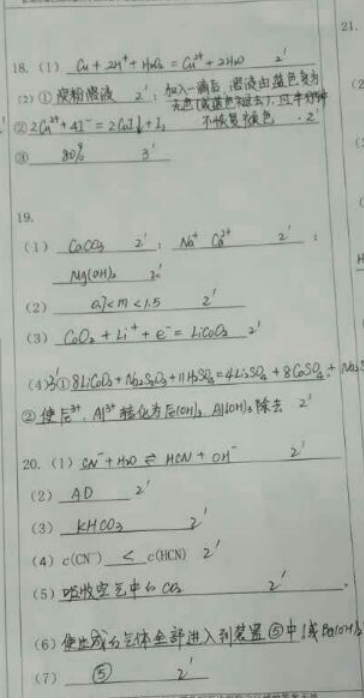 21.
18. (1) Cu + 2H⁺ + H₂O₂ = Cu²⁺ + 2H₂O 2'
(2) ① 淀粉溶液 2' ; 加入一滴后,溶液由蓝色变为
无色(或蓝色褪去),且半分钟
② 2Cu²⁺ + 4I⁻ = 2CuI↓ + I₂ 不恢复 色 . 2'
③ 80% 3'
19.
(1) CaCO₃ 2' ; Na⁺ Ca²⁺ 2' ;
Mg(OH)₂ 2'
(2) 0.7<m<1.5 2'
(3) CoO₂ + Li⁺ + e⁻ = LiCoO₂ 2'
(4) 3' ① 8LiCoO₂ + Na₂S₂O₃ + 11H₂SO₄ = 4Li₂SO₄ + 8CoSO₄ + Na₂S
② 使Fe³⁺、Al³⁺转化为Fe(OH)₃、Al(OH)₃除去 2'
20. (1) CN⁻ + H₂O ⇌ HCN + OH⁻ 2'
(2) AD 2'
(3) KHCO₃ 2'
(4) c(CN⁻) < c(HCN) 2'
(5) 吸收空气中的CO₂ 2' .
(6) 使生成的气体全部进入到装置⑤中(或Ba(OH)₂
(7) ⑤ 2'